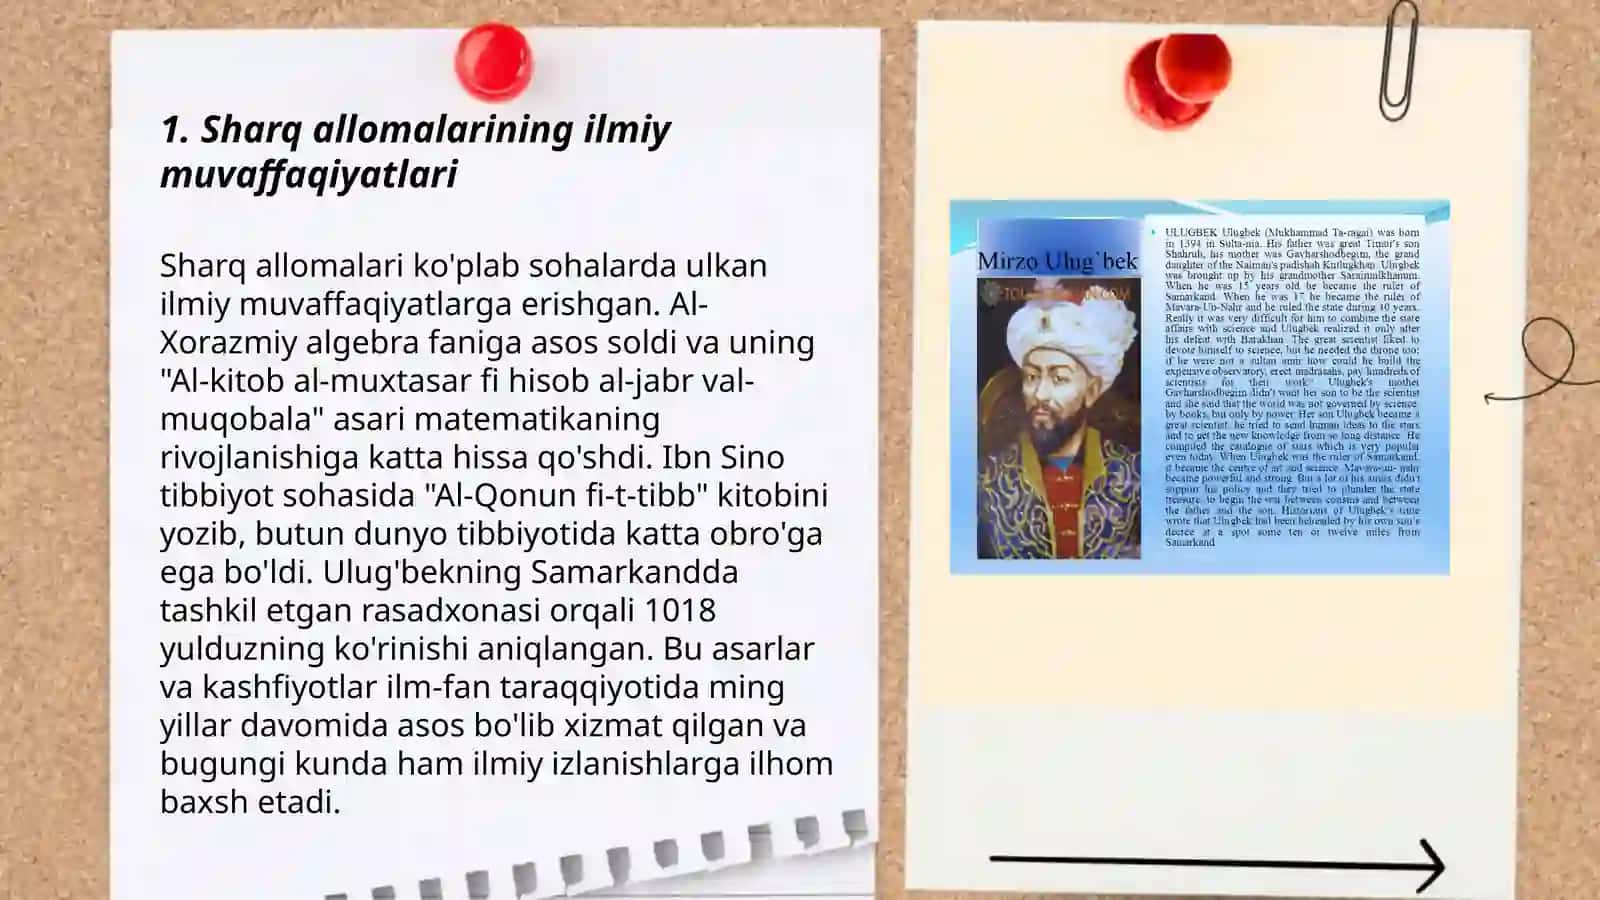 1. Sharq allomalarining ilmiy
muvaffaqiyatlari
Sharq allomalari ko'plab sohalarda ulkan
ilmiy muvaffaqiyatlarga erishgan. Al-
Xorazmiy algebra faniga asos soldi va uning
"Al-kitob al-muxtasar fi hisob al-jabr val-
muqobala" asari matematikaning
rivojlanishiga katta hissa qo'shdi. Ibn Sino
tibbiyot sohasida "Al-Qonun fi-t-tibb" kitobini
yozib, butun dunyo tibbiyotida katta obro'ga
ega bo'ldi. Ulug'bekning Samarkandda
tashkil etgan rasadxonasi orqali 1018
yulduzning ko'rinishi aniqlangan. Bu asarlar
va kashfiyotlar ilm-fan taraqqiyotida ming
yillar davomida asos bo'lib xizmat qilgan va
bugungi kunda ham ilmiy izlanishlarga ilhom
baxsh etadi.
Mirzo Ulug`bek
ULUGBEK Ulugbek (Mukhammad Ta-ragai) was born
in 1394 in Sulta-nia. His father was great Timur's son
Shahruh, his mother was Gavharshodbegim, the grand
daughter of the Naiman's padishah Kutlugkhan. Ulugbek
was brought up by his grandmother
When he was 15 years old he became the ruler of
Samarkand. When he was 17 he became the ruler of
Mavara-Un-Nahr and he ruled the state during 40 years.
Really it was very difficult for him to combine the state
affairs with science and Ulugbek realized it only after
his defeat with Barakhan. The great scientist liked to
devote himself to science, but he needed the throne too:
if he were not a sultan amir how could he build the
expensive observatory, erect madrasahs, pay hundreds of
scientists for their work? Ulugbek's mother
Gavharshodbegim didn't want her son to be the scientist
and she said that the world was not governed by science,
by books, but only by power. Her son Ulugbek became a
great scientist, he tried to send human ideas to the stars
and to get the new knowledge from so long distance. He
compiled the catalogue of stars which is very popular
even today. When Ulugbek was the ruler of Samarkand,
it became the centre of art and science. Mavara-un- nahr
became powerful and strong. But a lot of his amirs didn't
support his policy and they tried to plunder the state
treasure, to begin the war between cousins and between
the father and the son. Historians of Ulugbek's time
wrote that Ulugbek had been beheaded by his own son's
decree at a spot some ten or twelve miles from
Samarkand